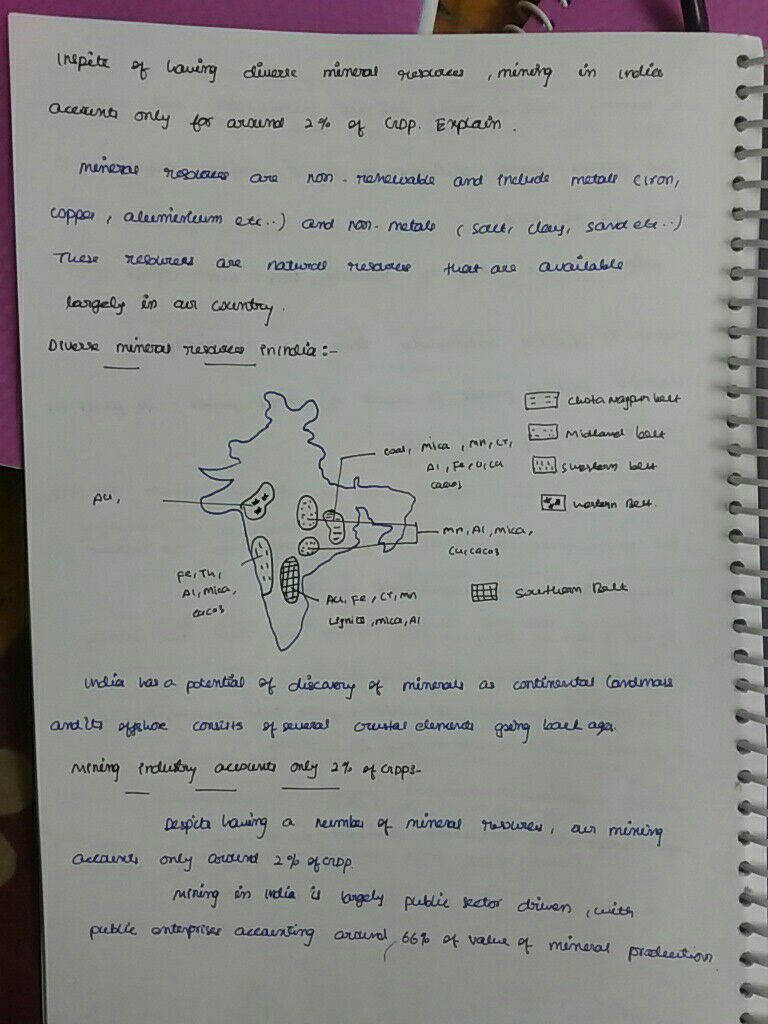 Inspite of having diverse mineral resources, mining in India
accounts only for around 2% of GDP. Explain.
Mineral resources are non-renewable and include metals (iron,
copper, aluminium etc..) and non-metals (salt, clay, sand etc..)
These resources are natural resource that are available
largely in our country.
Diverse mineral resources in India :-
Chota Nagpur belt
Midland belt
S western belt
Western Belt.
Southern Belt
coal, mica, Mn, Cr,
Al, Fe, U, Cu
CaCO3
Au,
Mn, Al, mica,
Cu, CaCO3
Fe, Th,
Al, Mica,
CaCO3
Au, Fe, Cr, Mn
Lignite, mica, Al
India has a potential of discovery of minerals as continental landmass
and its offshore consists of several crustal elements going back ago.
Mining industry accounts only 2% of GDP:-
Despite having a number of mineral resources, our mining
accounts only around 2% of GDP.
Mining in India is largely public sector driven, with
public enterprises accounting around 66% of value of mineral production